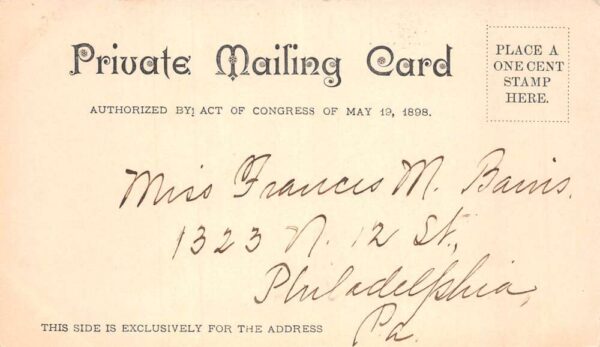 Private Mailing Card
AUTHORIZED BY ACT OF CONGRESS OF MAY 19, 1898.
PLACE A
ONE CENT
STAMP
HERE.
Miss Frances M.
1323 N. 12 St.,
Philadelphia,
Pa.
THIS SIDE IS EXCLUSIVELY FOR THE ADDRESS